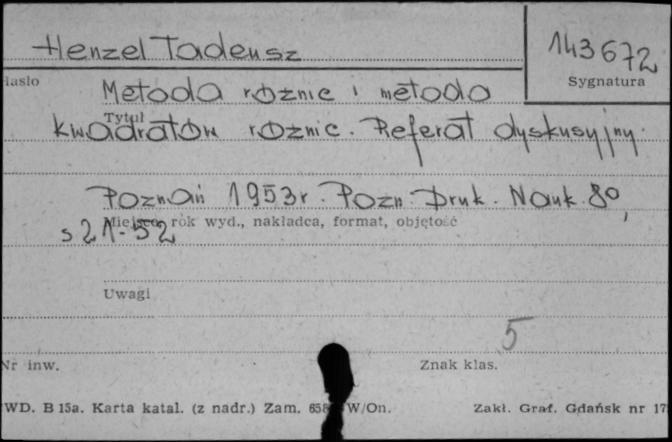 Henzel Tadeusz
143672
Hasło
Sygnatura
Metoda różnic i metoda
Tytuł
kwadratów różnic. Referat dyskusyjny.
Poznań 1953r. Pozn. Druk. Nauk. 8o,
Miejsce, rok wyd., nakładca, format, objętość
s 21-52
Uwagi
5
Nr inw.
Znak klas.
WD. B 15a. Karta katal. (z nadr.) Zam. 658 W/On.
Zakł. Graf. Gdańsk nr 17